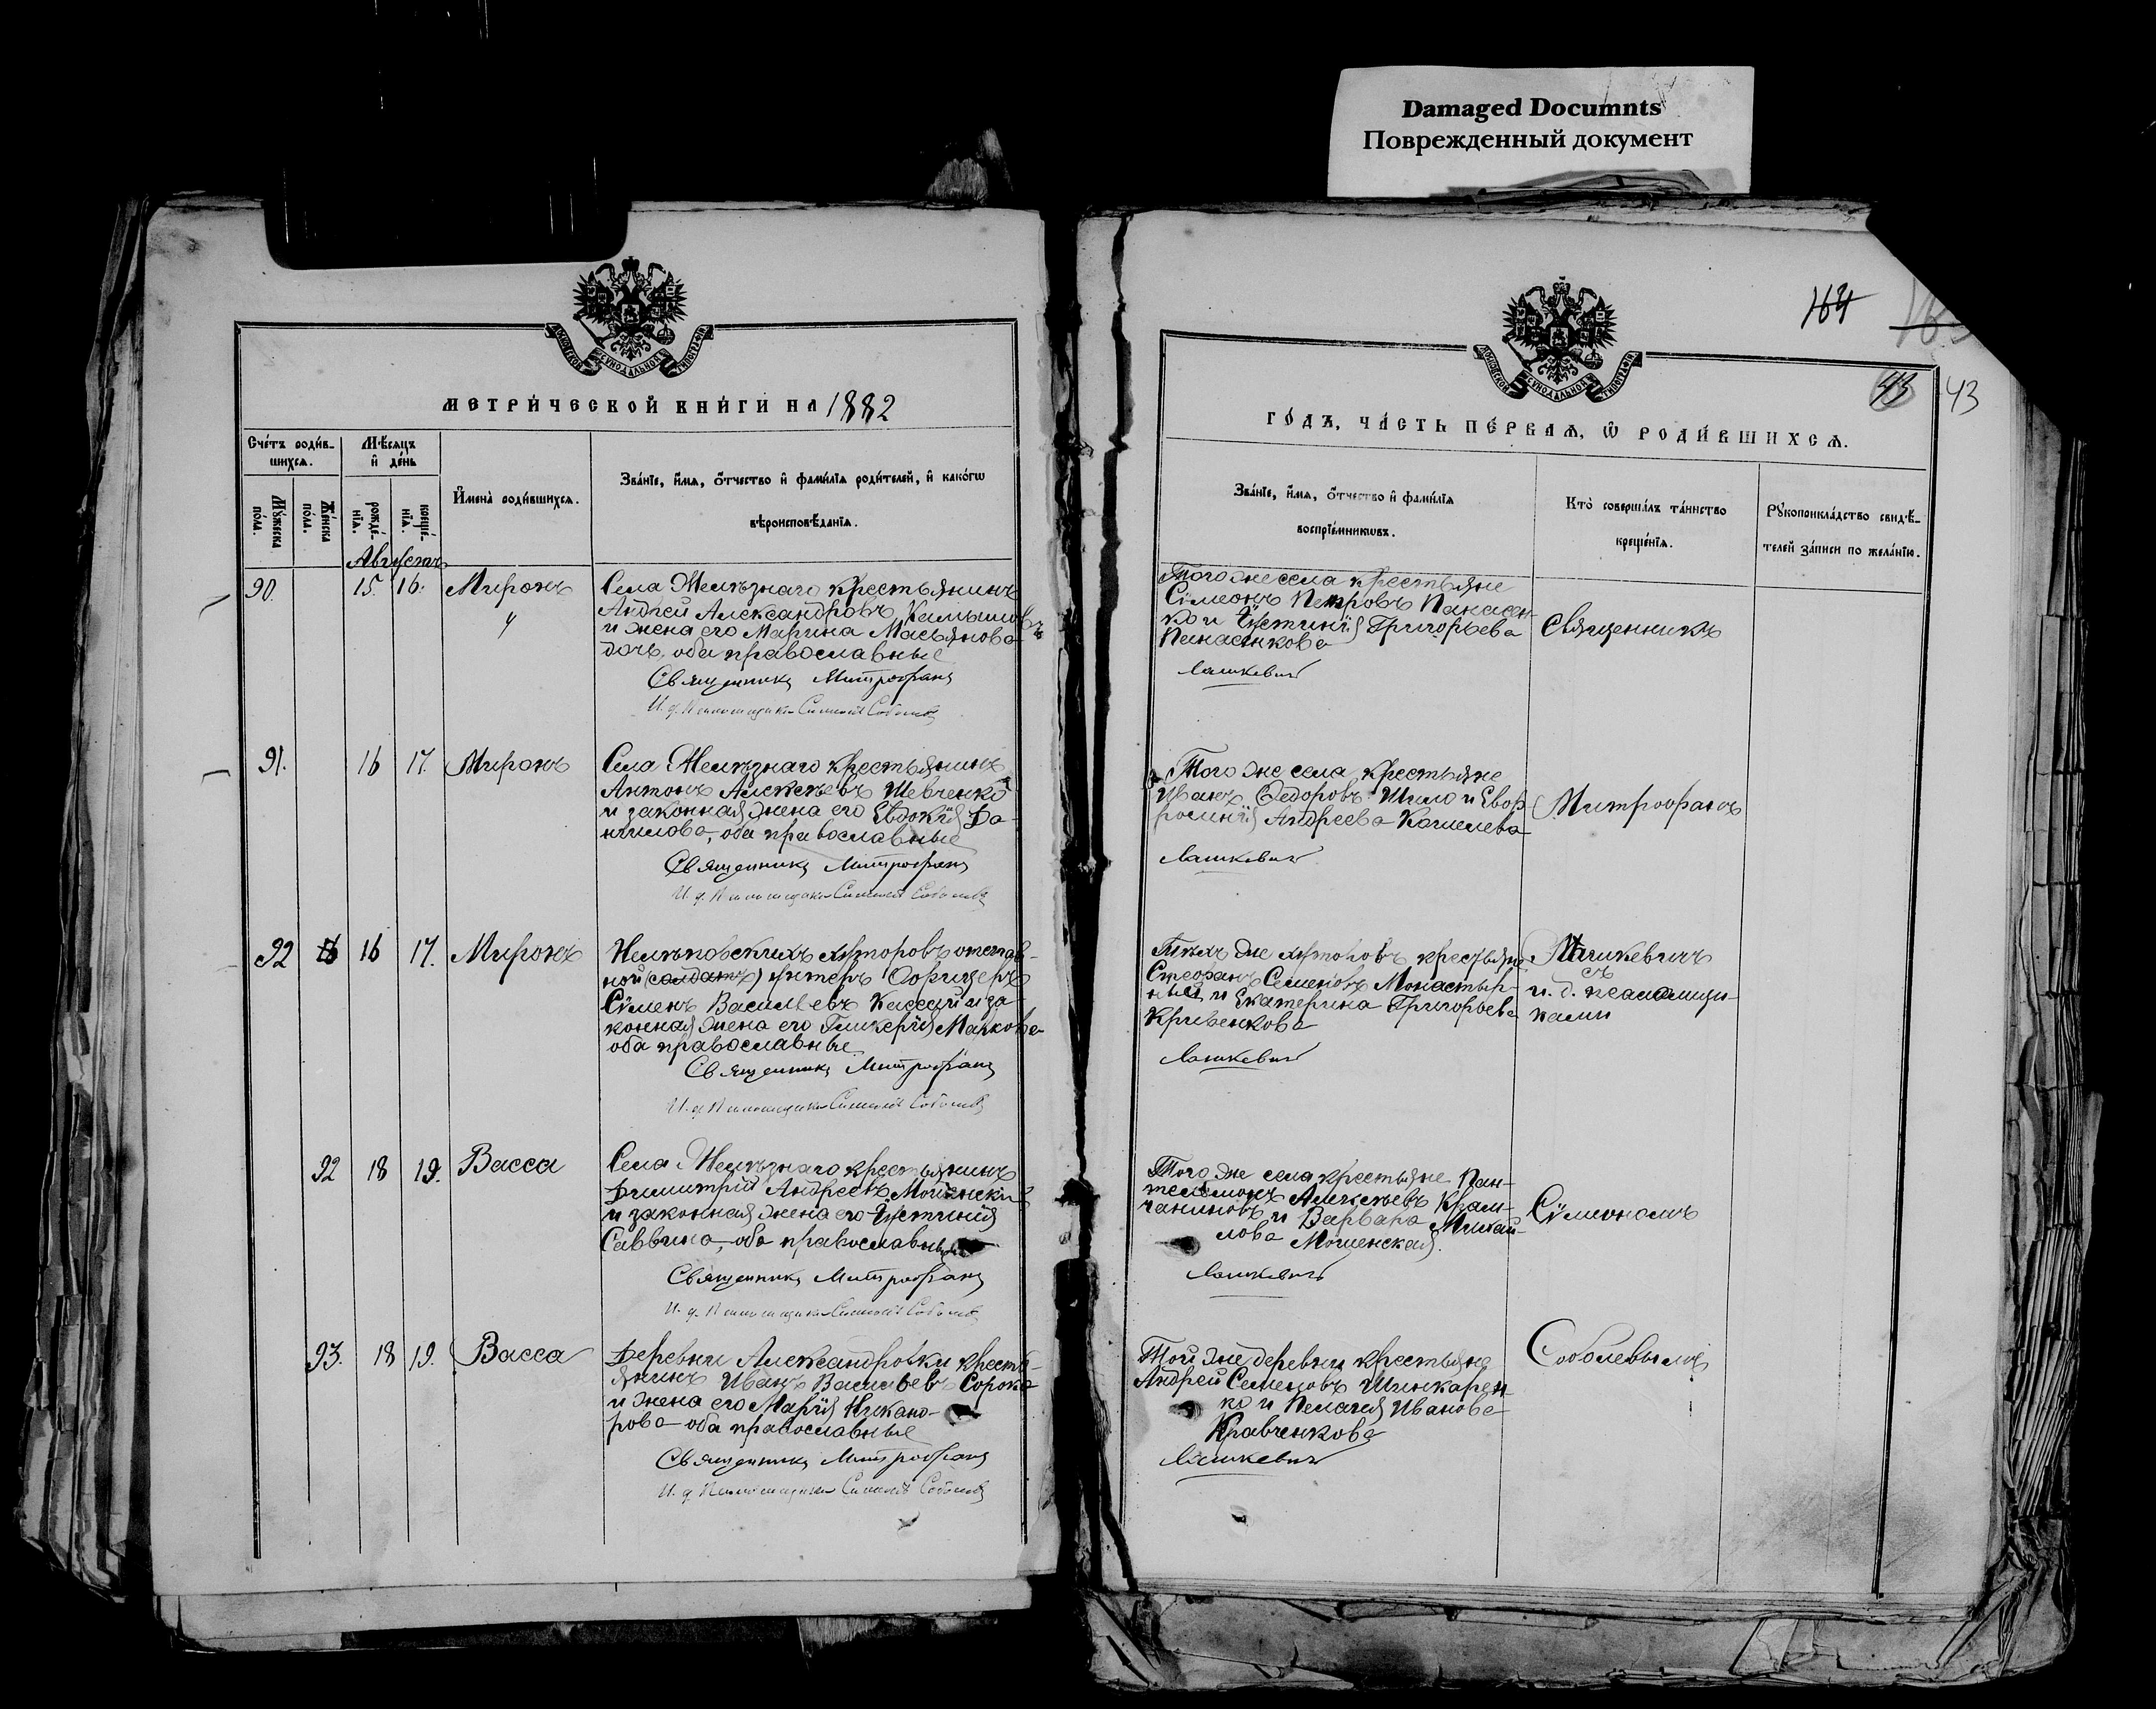 Damaged Documnts
Поврежденный документ
164
43
43
МОСКОВСКОЙ СѴНОДАЛЬНОЙ ТИПОГРАФІИ
МЕТРИ́ЧЕСКОЙ КНИ́ГИ НА 1882
Сче́тъ роди́в-
шихся.
Мѣ́сяцъ
и҆ де́нь
Мꙋ́жеска
по́ла.
Же́нска
по́ла.
рожде́-
нїѧ.
креще́-
нїѧ.
И҆мена̀ роди́вшихсѧ.
Зва́нїе, и҆́мѧ, ѻ҆́тчество и҆ фами́лїѧ роди́телей, и҆ како́гѡ
вѣроисповѣ́данїѧ.
Августъ
90.
15.
16.
Миронъ
Села Желѣзнаго крестьянинъ
Андрей Александровъ
и жена его Марина
дочь, оба православные
Священникъ Митрофанъ
И. д. Псаломщика Симеонъ Соболевъ
91.
16
17.
Миронъ
Села Желѣзнаго крестьянинъ
Антонъ Алексѣевъ Шевченко
и законная жена его Евдокія Да-
нилова, оба православные
Священникъ Митрофанъ
И. д. Псаломщика Симеонъ Соболевъ
92
16
17.
Миронъ
хуторовъ отстав-
ной (солдатъ) унтеръ Офицеръ
Сѵмеонъ Васильевъ и за-
конная жена его Гликерія Маркова
оба православные
Священникъ Митрофанъ
И. д. Псаломщика Симеонъ Соболевъ
92
18
19.
Васса
Села Желѣзнаго крестьянинъ
Димитрій Андреевъ Мошенскій
и законная жена его Іустинія
Саввина, оба православные
Священникъ Митрофанъ
И. д. Псаломщика Симеонъ Соболевъ
93.
18
19.
Васса
Деревни Александровки кресть-
янинъ Иванъ Васильевъ Сорока
и жена его Марія Никано-
рова оба православные
Священникъ Митрофанъ
И. д. Псаломщика Симеонъ Соболевъ
МОСКОВСКОЙ СѴНОДАЛЬНОЙ ТИПОГРАФІИ
ГО́ДЪ, ЧА́СТЬ ПЕ́РВАѦ, Ѽ РОДИ́ВШИХСѦ.
Зва́нїе, и҆́мѧ, ѻ҆́тчество и҆ фами́лїѧ
воспрїе́мникѡвъ.
Кто̀ соверша́лъ та́инство
креще́нїѧ.
Рꙋкоприкла́дство свидѣ́-
телей за́писи по жела́нїю.
Того же села крестьяне
Сѵмеонъ Петровъ Панасен-
ко и Іустинія Григорьева
Панасенкова
Лашкевичъ
Того же села крестьяне
Иванъ Федоровъ Шило и Евф-
росинія Андреева Кошелева
Лашкевичъ
Тѣхъ же хуторовъ крестьяне
Стефанъ Семеновъ Монастыр-
ный и Екатерина Григорьева
Кривенкова
Лашкевичъ
Того же села крестьяне Пан-
телеимонъ Алексѣевъ Крам-
чаниновъ и Варвара Михай-
лова Мошенская.
Лашкевичъ
Той же деревни крестьяне
Андрей Семеновъ Шинкарен-
ко и Пелагія Иванова
Кравченкова
Лашкевичъ
Священникъ
Митрофанъ
Лашкевичъ
съ
и. д. псаломщи-
камъ
Сѵмеономъ
Соболевымъ